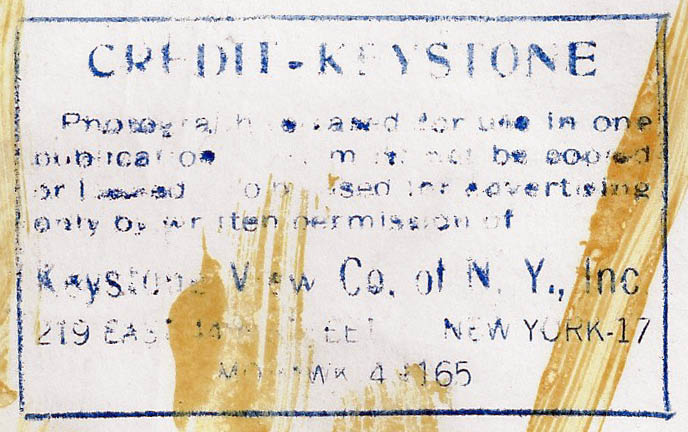 CREDIT-KEYSTONE
Photograph leased for use in one
publication must not be copied
or loaned used for advertising
only by written permission of
Keystone View Co. of N. Y., Inc
219 EAST STREET NEW YORK-17
MOHAWK 4